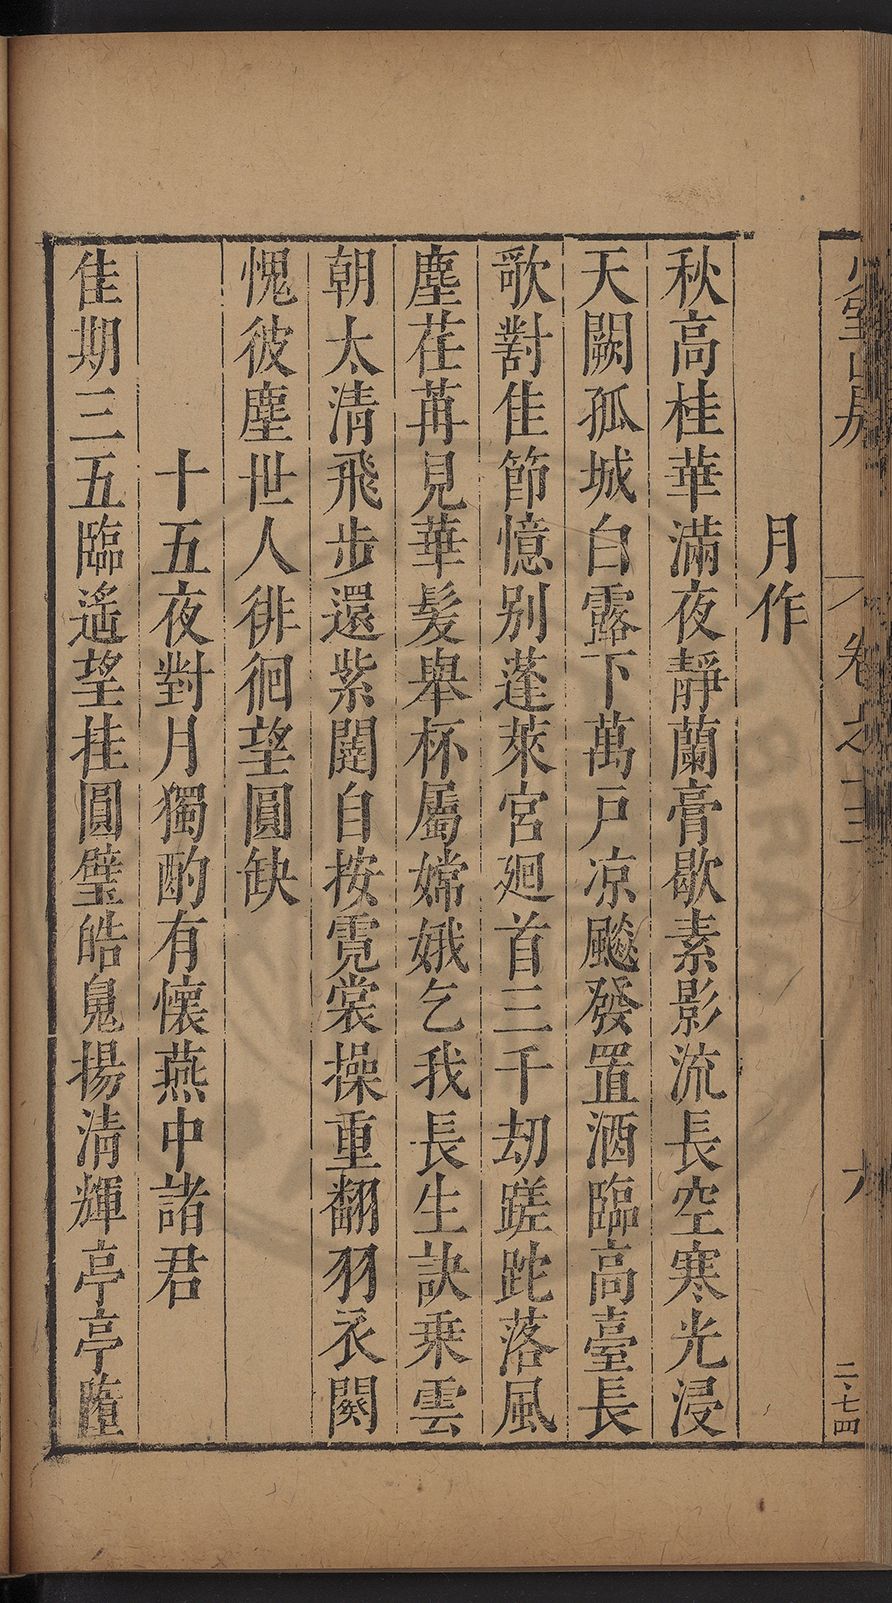 月作
秋高桂華滿夜靜蘭膏歇素影流長空寒光浸
天闕孤城白露下萬戸凉飈發置酒臨高臺長
歌對佳節憶别蓬萊宮廻首三千劫蹉跎落風
塵荏苒見華髮舉杯屬嫦娥乞我長生訣乗雲
朝太清飛步還紫闥自按霓裳操重翻羽衣闋
愧彼塵世人徘徊望圓缺
十五夜對月獨酌有懷燕中諸君
佳期三五臨遙望挂圓璧皓䰟揚淸輝亭亭墮
山房
卷之
二、七四